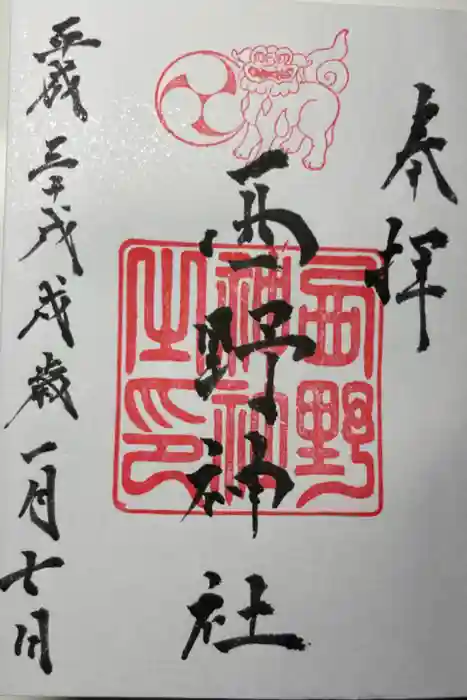 奉拝
西野神社
西野
神社
之印
平成三十戊戌歳一月七日